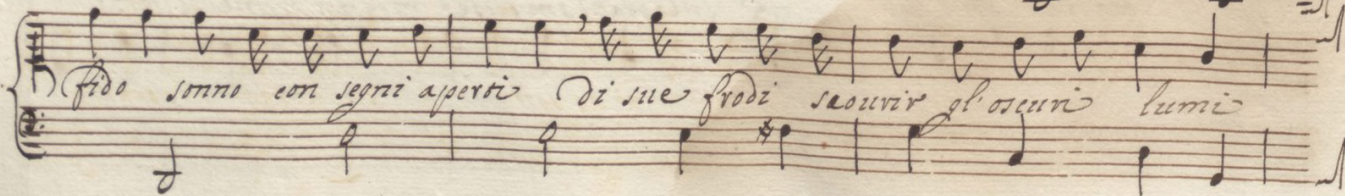 fido sonno con segni aperti di sue frodi scourir gl'oscuri lumi